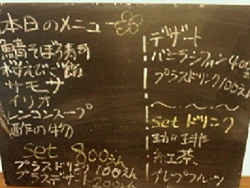 本日のメニュー
鯖そぼろ寿司
桜えびご飯
サモーサ
レンコンスープ
酢の物
Set 800えん
プラスドリンク100えん
プラスデザート200えん
デザート
バニラシフォン400
プラスドリンク100えん
Setドリンク
紅茶
グレープフルーツ